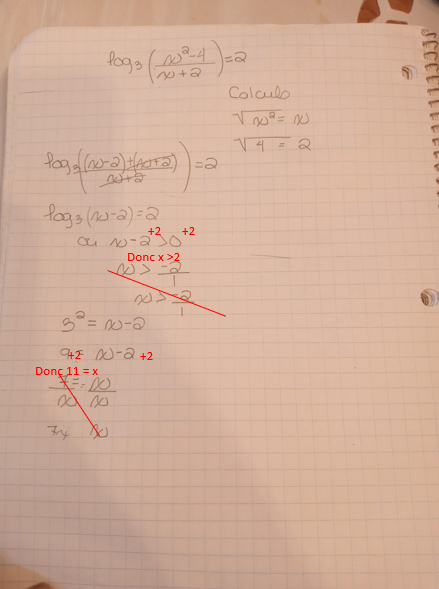 log₃(x²-4/x+2)=2
Calculs
√x² = x
√4 = 2
log₃((x-2)+(x+2)/x+2)=2
log₃(x-2)=2
+2 +2
où x-2>0
Donc x >2
x > -2/1
x > -2/1
3² = x-2
9 = x-2
+2 +2
Donc 11 = x
7/x = x/x
7x x